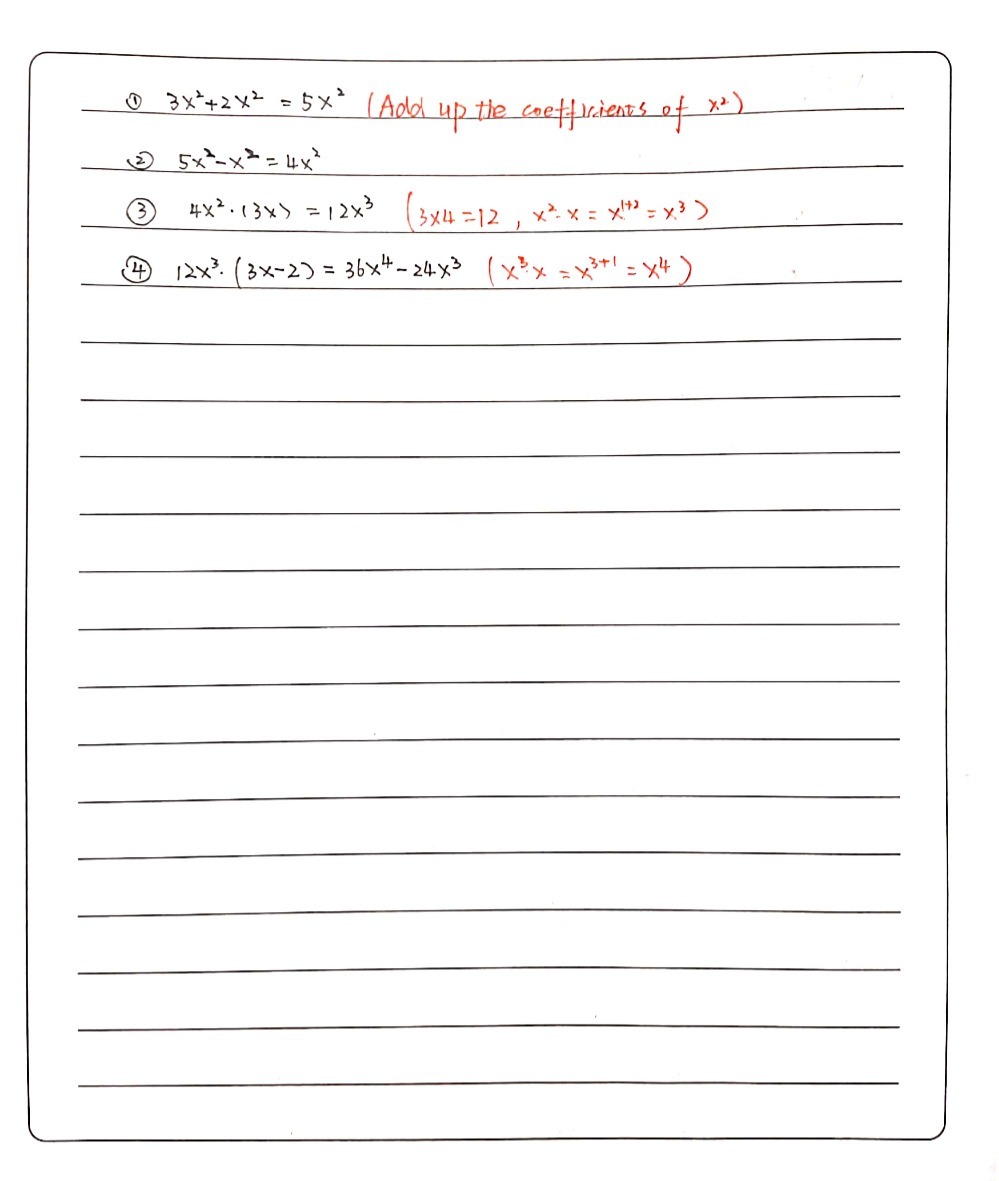 ① 3x²+2x² = 5x² (Add up the coefficients of x²)
② 5x²-x² = 4x²
③ 4x²·(3x) = 12x³ (3x4=12, x²·x = x¹⁺² = x³)
④ 12x³·(3x-2) = 36x⁴-24x³ (x³·x = x³⁺¹ = x⁴)